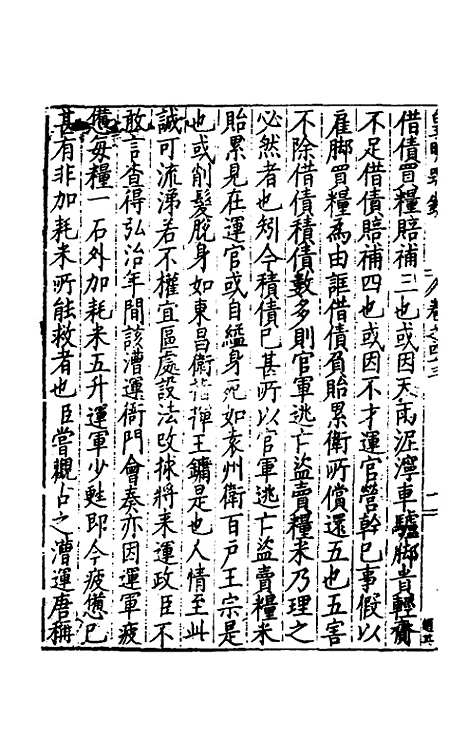 皇明疏鈔
卷之四三
借債買糧賠補三也或因天雨泥濘車驢脚貴輕齎
不足借債賠補四也或因不才運官營幹已事假以
雇脚買糧為由誆借債負貽累衛所償還五也五害
不除借債積債數多則官軍逃亡盜賣糧米乃理之
必然者也矧今積債已甚所以官軍逃亡盜賣糧米
貽累見在運官或自縊身死如袁州衛百戶王宗是
也或削髮脫身如東昌衛指揮王鏞是也人情至此
誠可流涕若不權宜區處設法改捄將來運政臣不
敢言查得弘治年間該漕運衙門會奏亦因運軍疲
憊每糧一石外加耗米五升運軍少甦即今疲憊已
甚有非加耗米所能救者也臣嘗觀占之漕運唐稱